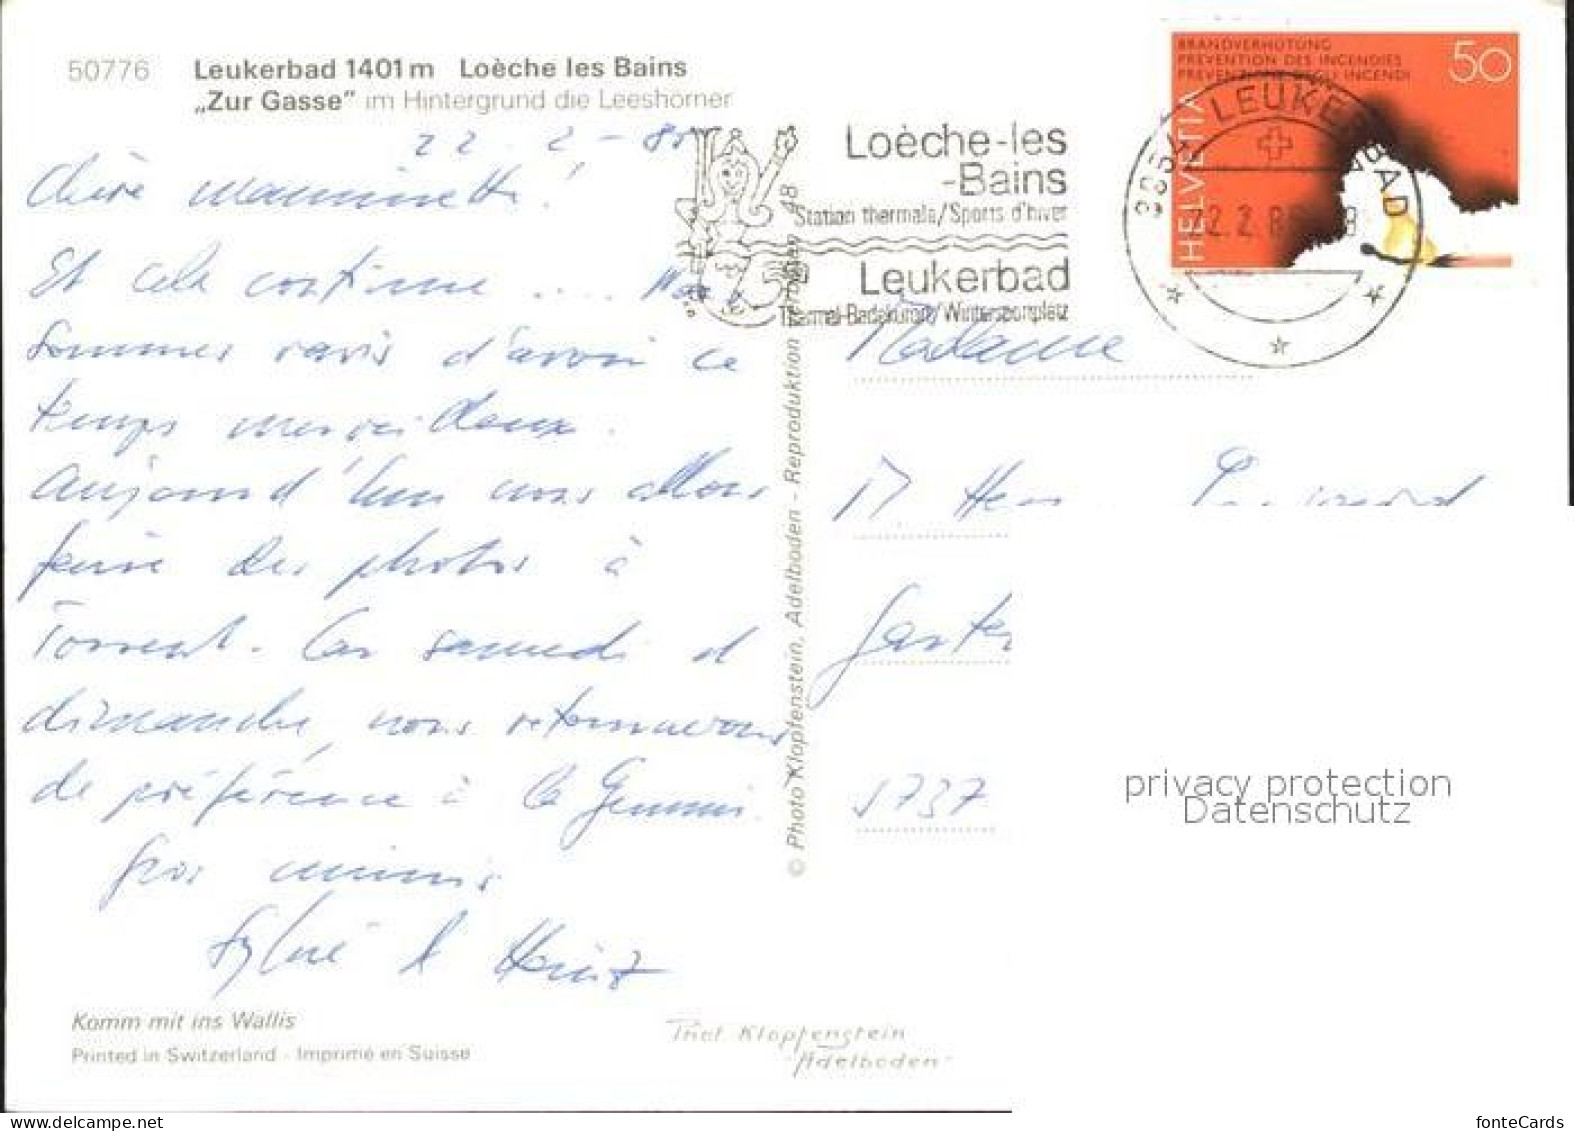 50776 Leukerbad 1401 m Loèche les Bains
„Zur Gasse" im Hintergrund die Leeshörner
22. 2 - 85
Chère maminette!
Et cela continue .... Nous
sommes ravis d'avoir ce
temps merveilleux.
Aujourd'hui nous allons
faire des photos à
Torrent. Car samedi et
dimanche, nous retournerons
de préférence à la Gemmi.
Gros mimis
Sylvie & Heinz
Komm mit ins Wallis
Printed in Switzerland - Imprimé en Suisse
Phot. Klopfenstein
"Adelboden"
© Photo Klopfenstein, Adelboden - Reproduktion verboten
Loèche-les
-Bains
Station thermale/Sports d'hiver
Leukerbad
Thermal-Badekurort/Wintersportplatz
BRANDVERHÜTUNG
PREVENTION DES INCENDIES
PREVENZIONE DEGLI INCENDI
50
HELVETIA
3954 LEUKERBAD
22.2.85
Madame
5737
privacy protection
Datenschutz
fonteCards
delcampe.net